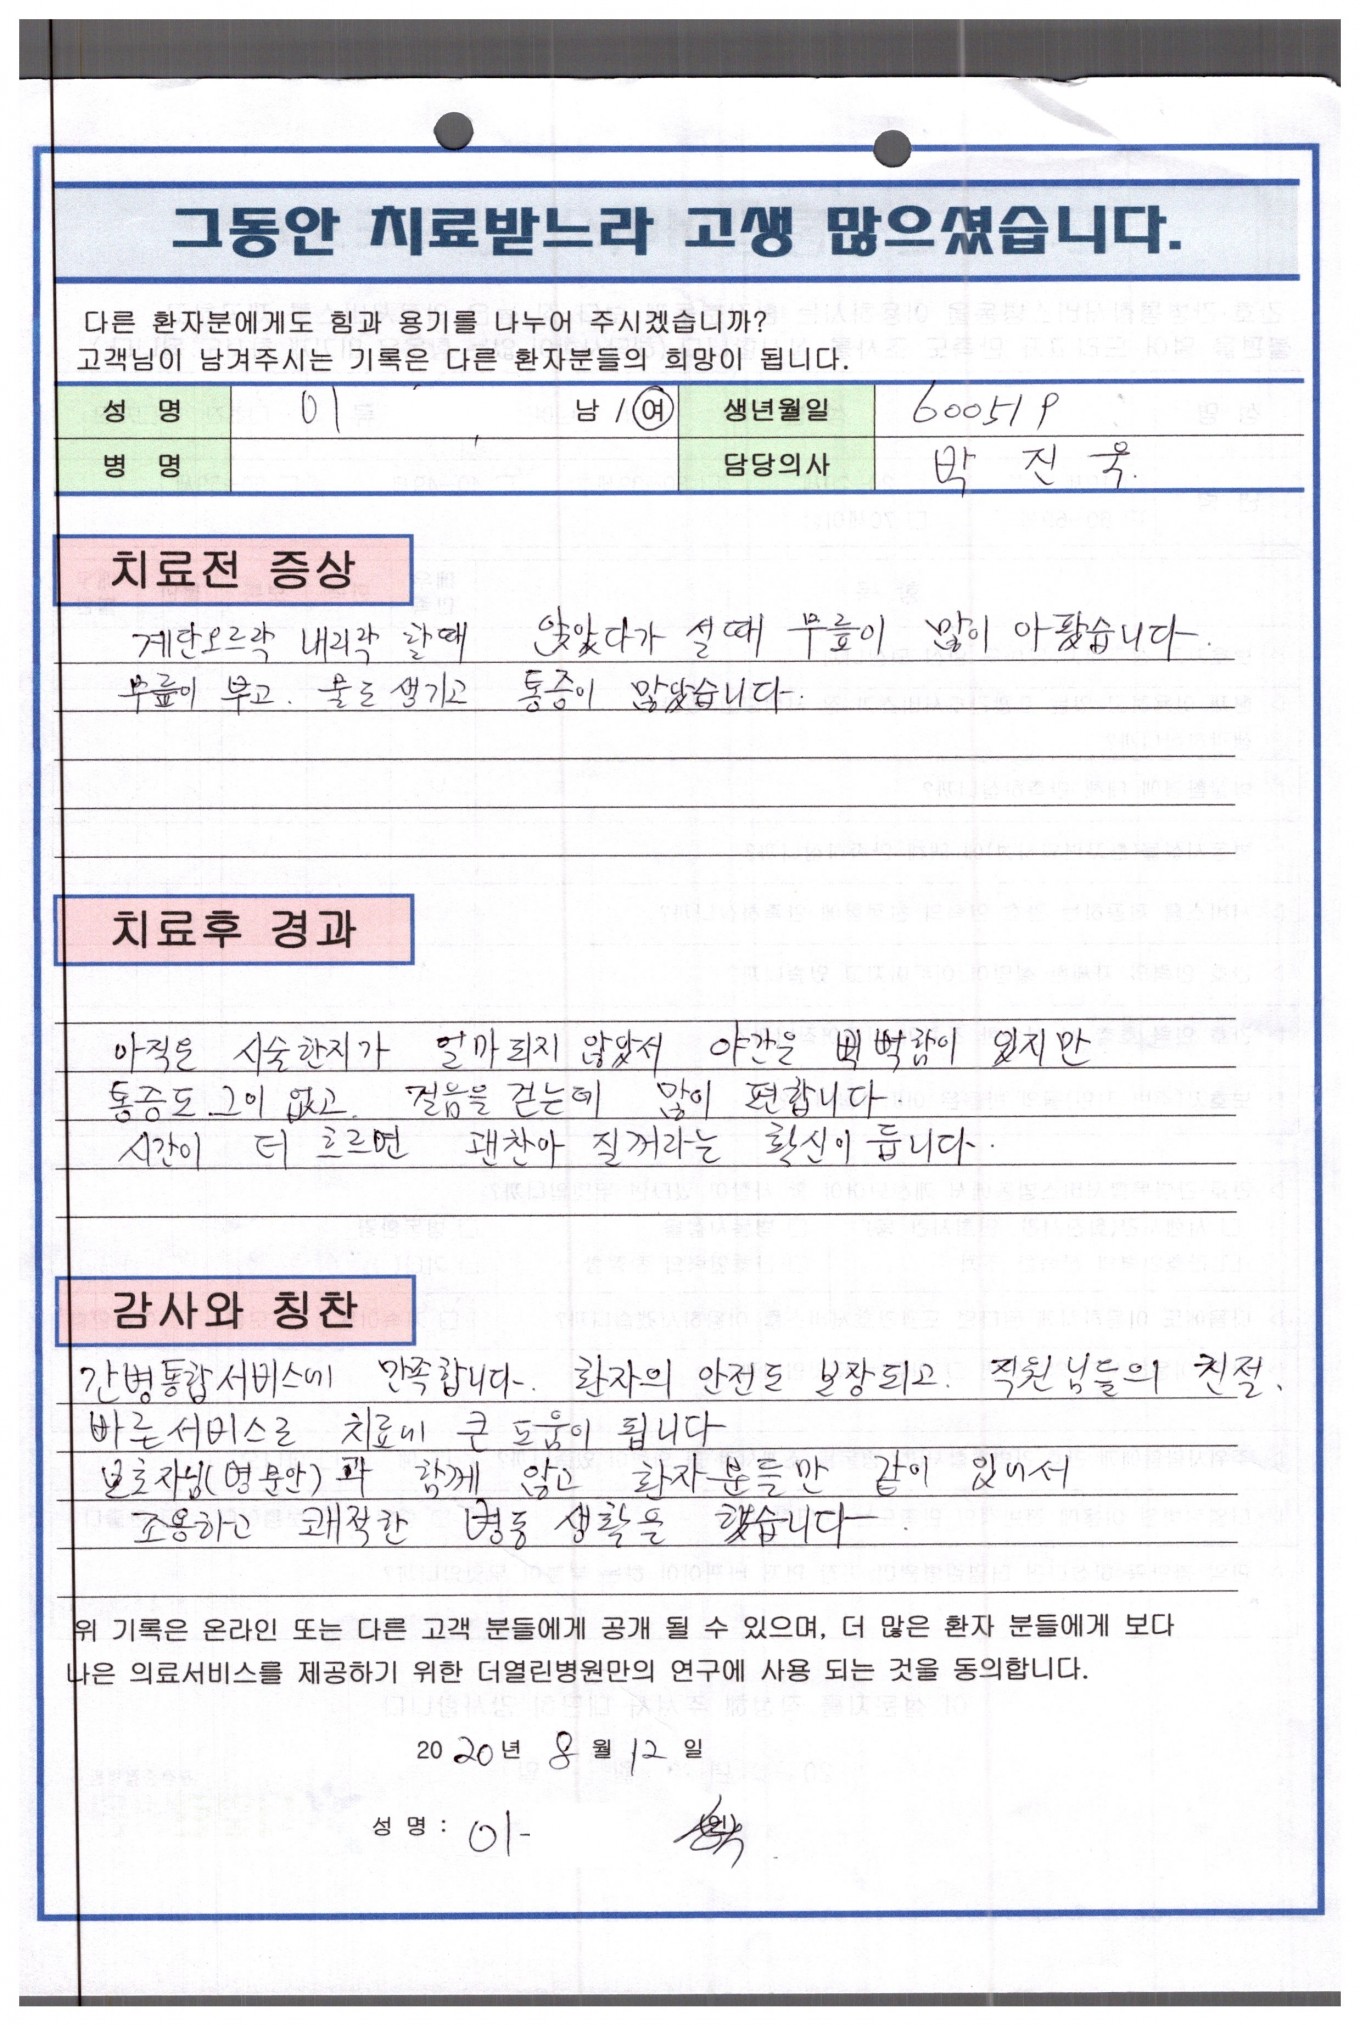 그동안 치료받느라 고생 많으셨습니다.
다른 환자분에게도 힘과 용기를 나누어 주시겠습니까?
고객님이 남겨주시는 기록은 다른 환자분들의 희망이 됩니다.
성 명 이 남 / 여 생년월일 600519
병 명 담당의사 박 진 욱.
치료전 증상
계단오르락 내리락 할때 앉았다가 설때 무릎이 많이 아팠습니다.
무릎이 붓고. 물도 생기고 통증이 많았습니다.
치료후 경과
아직은 시술한지가 얼마되지 않았서 야간은 뻑뻑함이 있지만
통증도 그이 없고. 걸음을 걷는데 많이 편합니다
시간이 더 흐르면 괜찬아 질꺼라는 확신이 듭니다.
감사와 칭찬
간병통합서비스에 만족합니다. 환자의 안전도 보장되고. 직원님들의 친절,
빠른서비스로 치료에 큰 도움이 됩니다
보호자님(병문안)과 함께 않고 환자분들만 같이 있어서
조용하고 쾌적한 병동 생활을 했습니다.
위 기록은 온라인 또는 다른 고객 분들에게 공개 될 수 있으며, 더 많은 환자 분들에게 보다
나은 의료서비스를 제공하기 위한 더열린병원만의 연구에 사용 되는 것을 동의합니다.
20 20년 8 월 12 일
성 명 : 이-